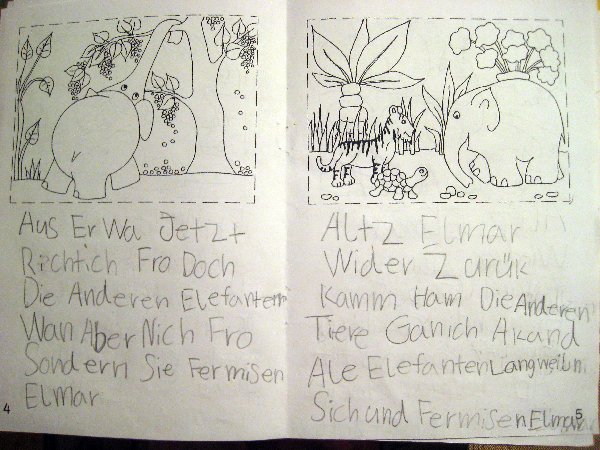 Aus Er Wa Jetzt
Richtich Fro Doch
Die Anderen Elefanten
Wan Aber Nich Fro
Sondern Sie Fermisen
Elmar
4
Altz Elmar
Wider Zurük
Kamm Ham Die Anderen
Tiere Ganich Akand
Ale Elefanten Langweiln
Sich und Fermisen Elmar
5